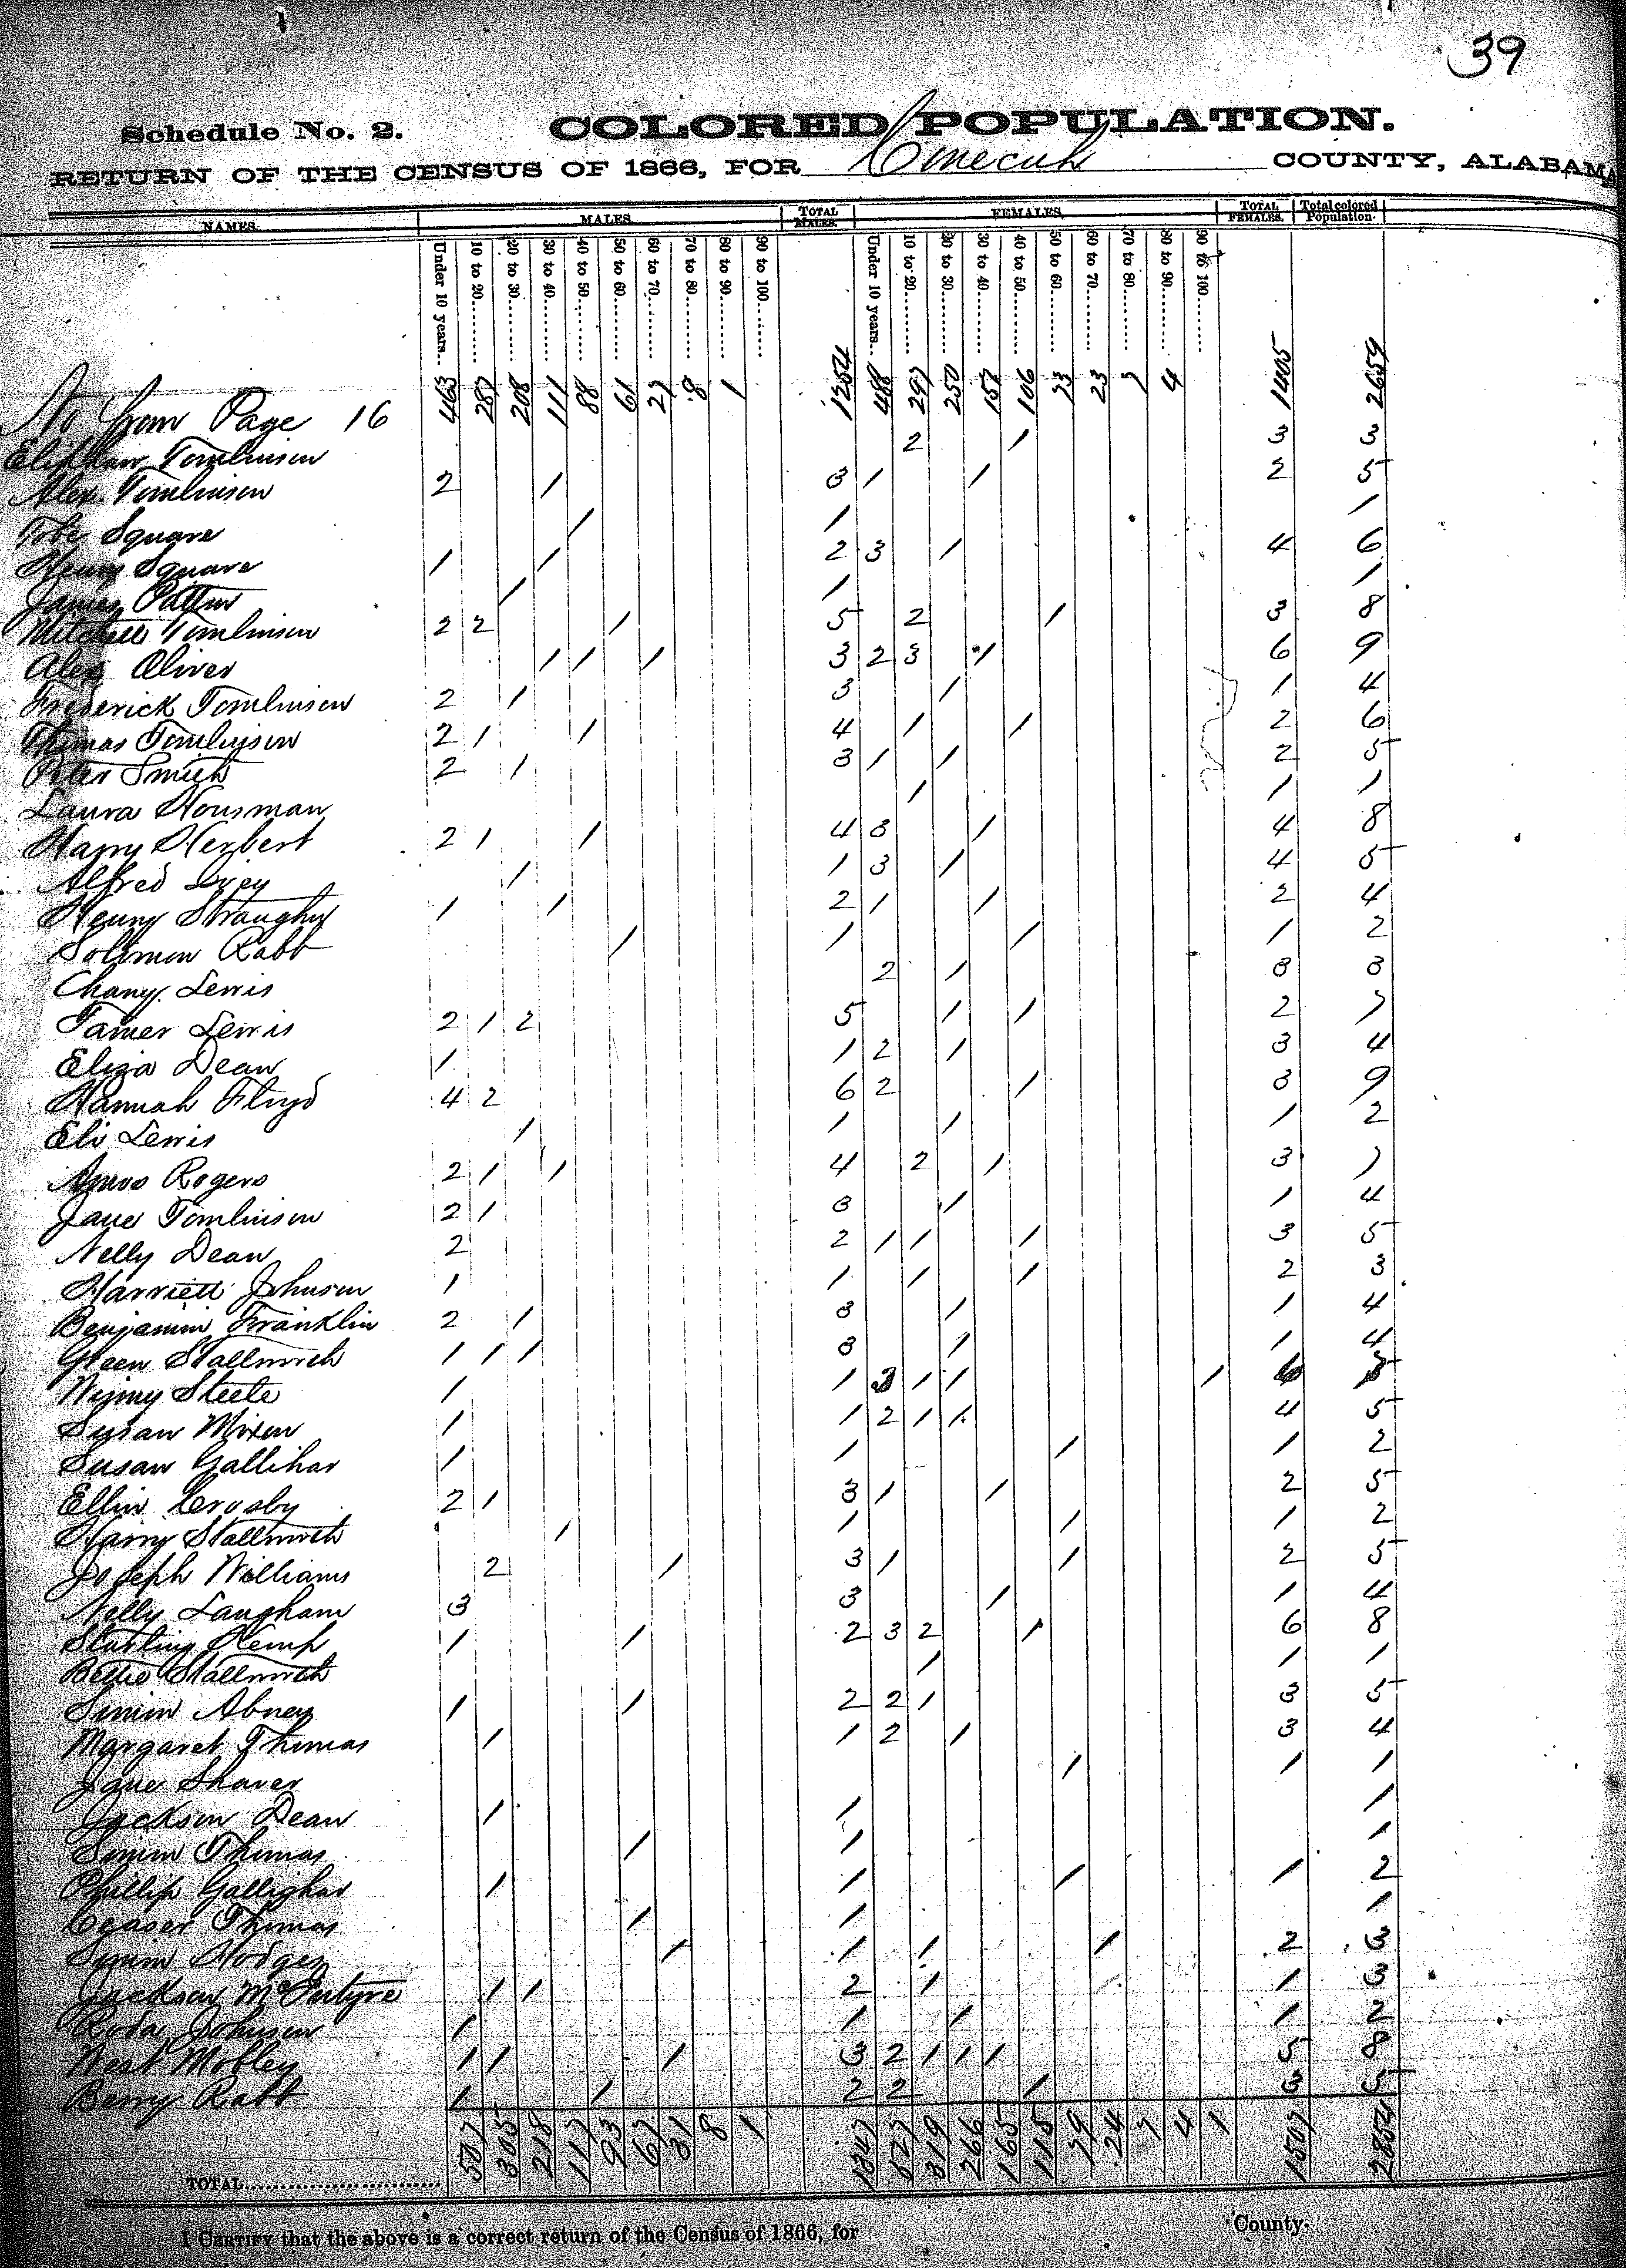 39
Schedule No. 2. COLORED POPULATION.
RETURN OF THE CENSUS OF 1866, FOR Conecuh COUNTY, ALABAMA
NAMES. MALES. TOTAL MALES. FEMALES. TOTAL FEMALES. Total colored Population.
Under 10 years.. 10 to 20........ 20 to 30........ 30 to 40........ 40 to 50........ 50 to 60........ 60 to 70........ 70 to 80........ 80 to 90........ 90 to 100........ Under 10 years.. 10 to 20........ 20 to 30........ 30 to 40........ 40 to 50........ 50 to 60........ 60 to 70........ 70 to 80........ 80 to 90........ 90 to 100........
No from Page 16 463 287 208 111 88 61 27 8 1 1254 488 297 250 157 106 73 23 7 4 1405 2659
Tomlinson 2 1 3 3
Alex Tomlinson 2 1 3 1 1 2 5
Tobe Square 1 1 1
Henry Square 1 1 2 3 1 4 6
James Patton 1 1 1
Mitchell Tomlinson 2 2 1 5 2 1 3 8
Alex Oliver 1 1 1 3 2 3 1 6 9
Frederick Tomlinson 2 1 3 1 1 4
Thomas Tomlinson 2 1 1 4 1 1 2 6
Peter Smith 2 1 3 1 1 2 5
Laura Housman 1 1 1
Harry Herbert 2 1 1 4 3 1 4 8
Alfred Ivey 1 1 3 1 4 5
Henry Straughn 1 1 2 1 1 2 4
Solomon Rabb 1 1 1 1 2
Chany Lewis 2 1 3 3
Tamer Lewis 2 1 2 5 1 1 2 7
Eliza Dean 1 1 2 1 3 4
Hannah Floyd 4 2 6 2 1 3 9
Eli Lewis 1 1 1 1 2
Amos Rogers 2 1 1 4 2 1 3 7
Jane Tomlinson 2 1 3 1 1 4
Nelly Dean 2 2 1 1 1 3 5
Harriett Johnson 1 1 1 1 2 3
Benjamin Franklin 2 1 3 1 1 4
Green Stallworth 1 1 1 3 1 1 4
Steele 1 1 3 1 1 1 6
Susan Mixon 1 1 2 1 1 4 5
Susan Gallihar 1 1 1 1 2
Ellin Crosby 2 1 3 1 1 2 5
Harry Stallworth 1 1 1 1 2
Joseph Williams 2 1 3 1 1 2 5
Nelly Langham 3 3 1 1 4
Starling Kemp 1 1 2 3 2 1 6 8
Bettie Stallworth 1 1 1
Simon Abney 1 1 2 2 1 3 5
Margaret Thomas 1 1 2 1 3 4
Jane Shaver 1 1 1
Jackson Dean 1 1 1
Simon Thomas 1 1 1
Phillip Gallighar 1 1 1 1 2
Ceaser Thomas 1 1 1
Hodges 1 1 1 1 2 3
Jackson McIntyre 1 1 2 1 1 3
Roda Johnson 1 1 1 1 2
West Mobley 1 1 1 3 2 1 1 1 5 8
Berry Rabb 1 1 2 2 1 3 5
TOTAL........................ 507 305 218 117 93 67 31 8 1 1347 527 319 266 165 115 79 24 7 4 1 1507 2854
I CERTIFY that the above is a correct return of the Census of 1866, for County.